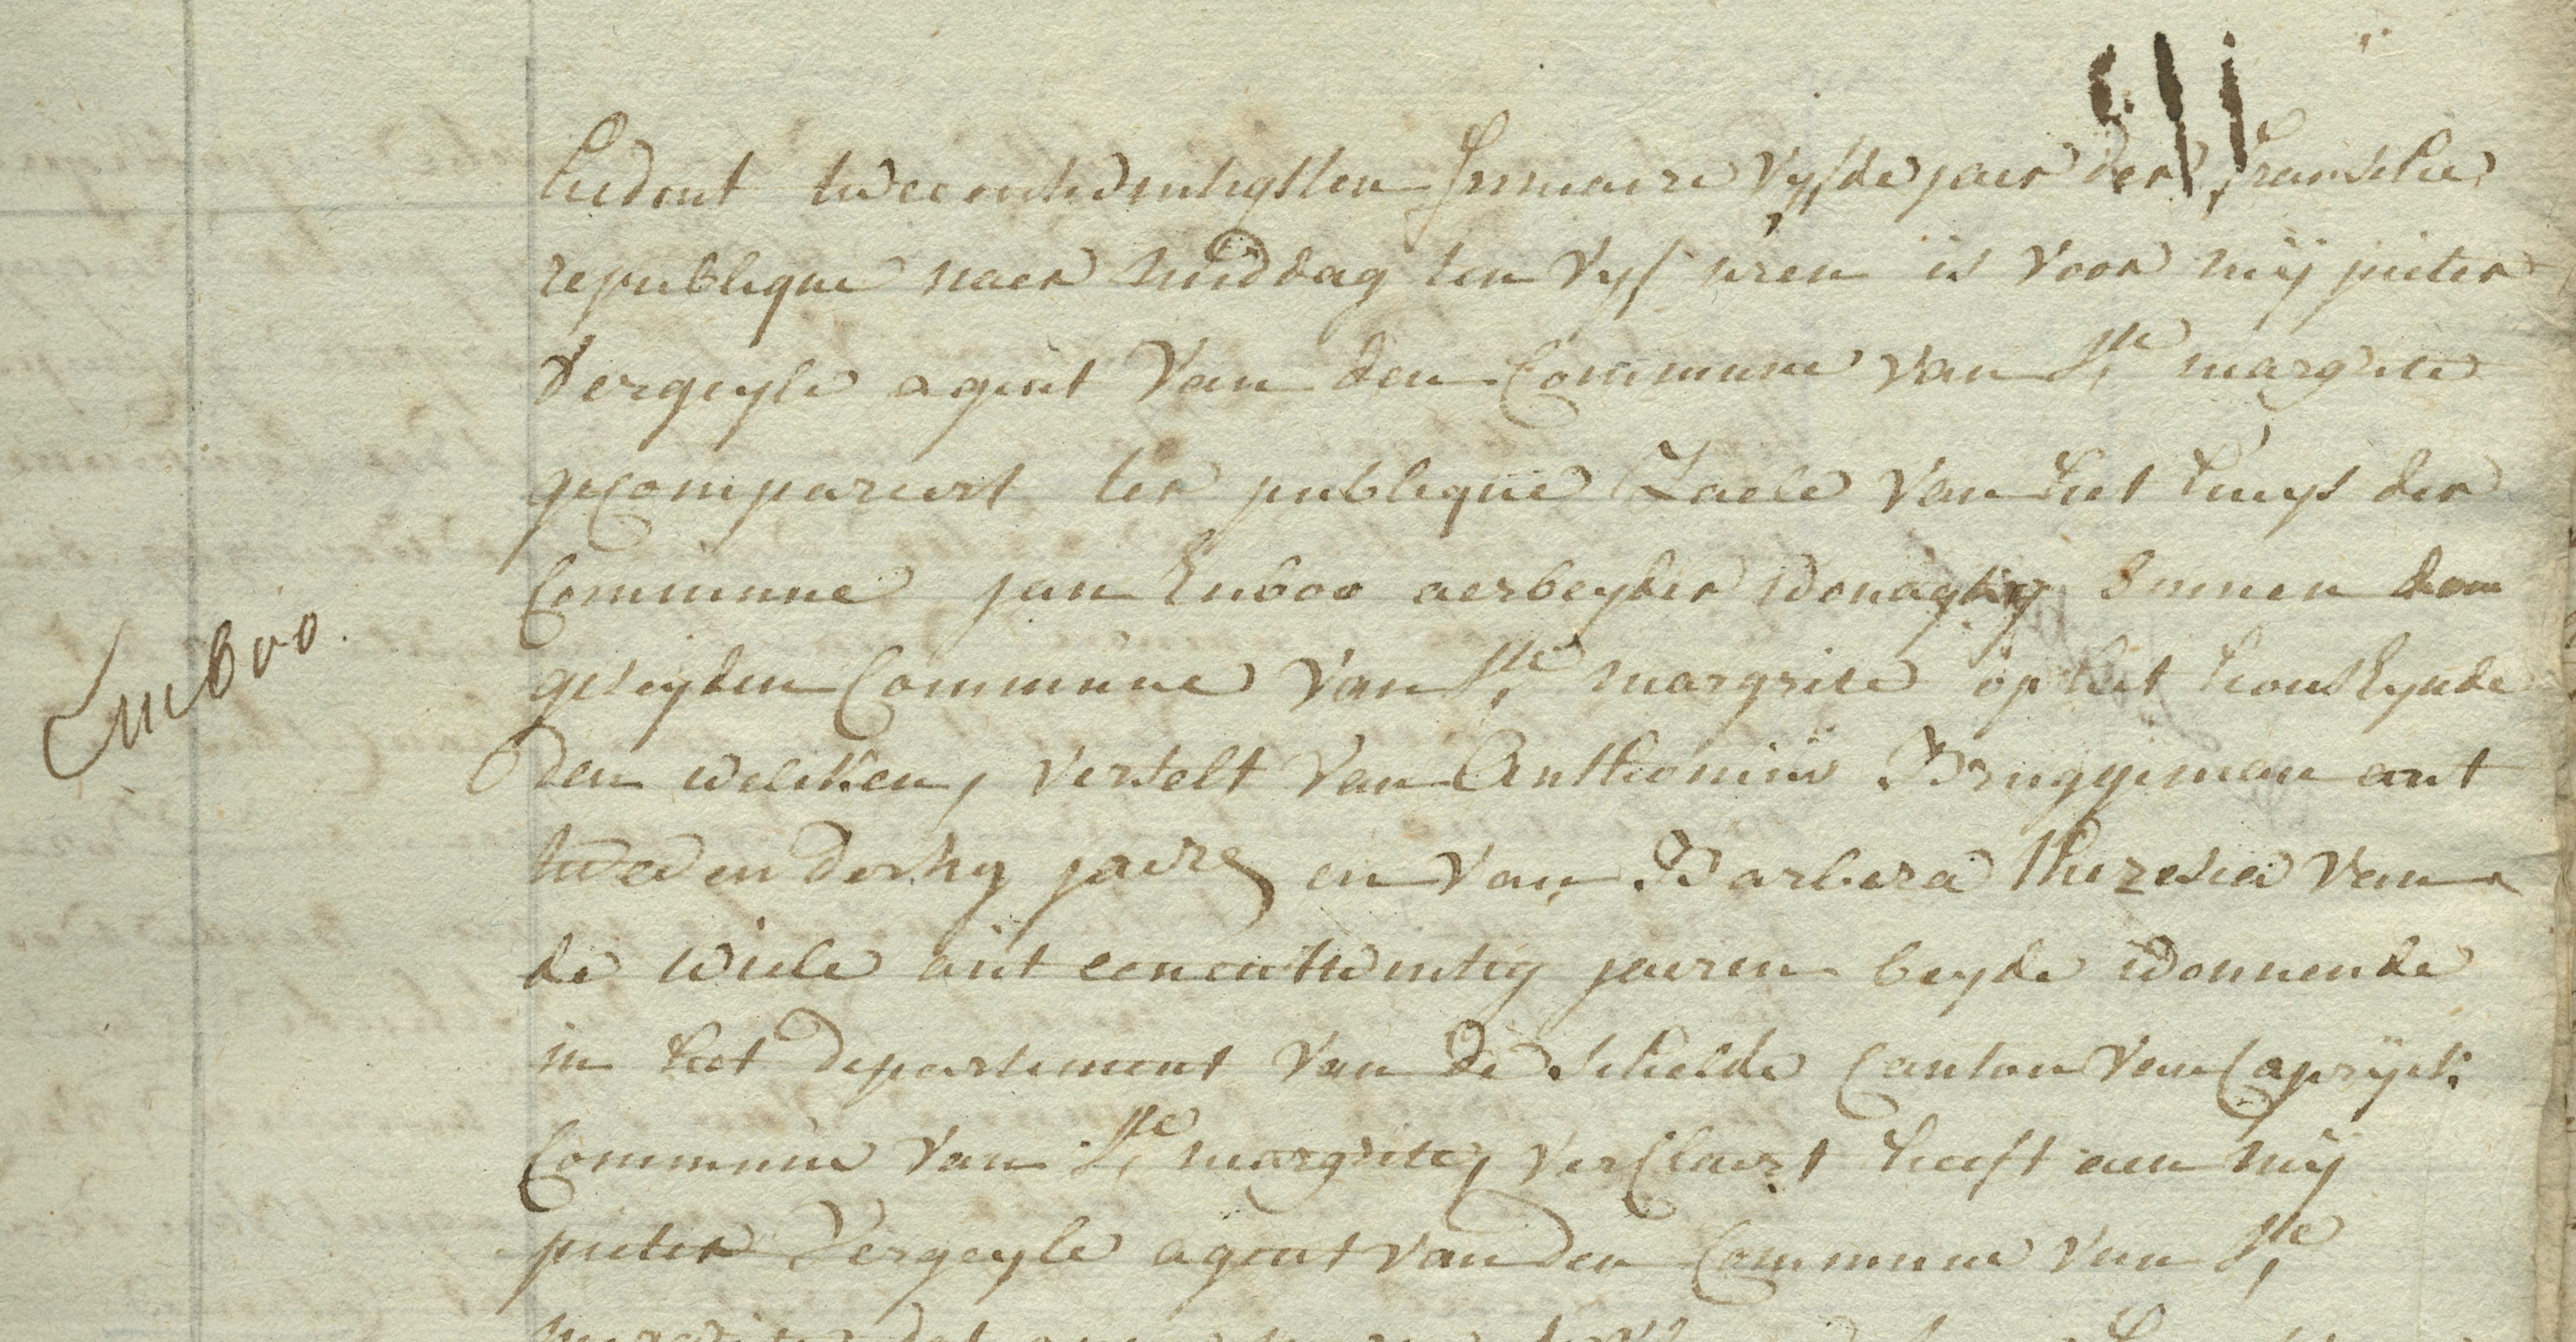 hudent tweentwintigsten frimaire vyfde jaer der fransche
republique naer middag ten vyf uren is voor mij pieter
Vergeyle agent van den Commune van Ste margrite
gecompareert ter publique Zaele van het huys der
Commune jan Enboo aerbeyder wonagtig binnen den
geseyden Commune van Ste margrite op het
Enboo.
den welcken, verselt van Anthoniüs Bruggeman out
twee en dertig jaeren en van Barbera theresia van
de wiele out eenentwintig jaeren beyde wonnende
in het departement van de schelde Canton van Capryck
Commune van Ste margrite, verclaert heeft aen mij
pieter Vergeyle agent van den Commune van Ste